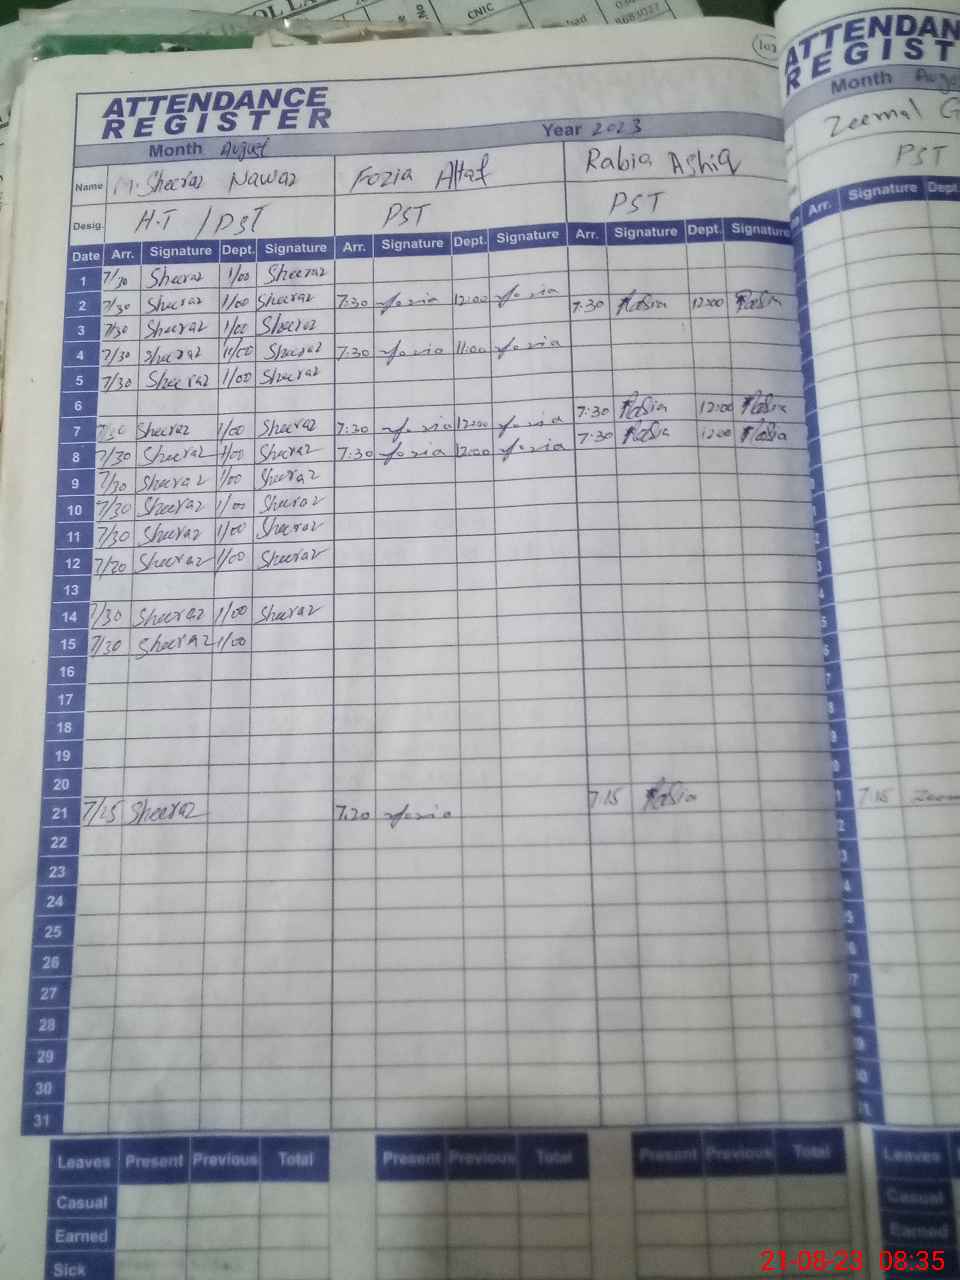 CNIC
9683027
102
ATTENDANCE
REGISTER
Month August Year 2023
Name M. Sheeraz Nawaz Fozia Altaf Rabia Ashiq
Desig. H.T / PST PST PST
Date Arr. Signature Dept. Signature Arr. Signature Dept. Signature Arr. Signature Dept. Signature
1 7/30 Sheeraz 1/00 Sheeraz
2 7/30 Sheeraz 1/00 Sheeraz 7:30 fozia 12:00 fozia 7:30 Rabia 12:00 Rabia
3 7/30 Sheeraz 1/00 Sheeraz
4 7/30 Sheeraz 11/00 Sheeraz 7:30 fozia 11:00 fozia
5 7/30 Sheeraz 1/00 Sheeraz
6
7 7/30 Sheeraz 1/00 Sheeraz 7:30 fozia 12:00 fozia 7:30 Rabia 12:00 Rabia
8 7/30 Sheeraz 1/00 Sheeraz 7:30 fozia 12:00 fozia 7:30 Rabia 12:00 Rabia
9 7/30 Sheeraz 1/00 Sheeraz
10 7/30 Sheeraz 1/00 Sheeraz
11 7/30 Sheeraz 1/00 Sheeraz
12 7/20 Sheeraz 1/00 Sheeraz
13
14 7/30 Sheeraz 1/00 Sheeraz
15 7/30 Sheeraz 1/00
16
17
18
19
20
21 7/15 Sheeraz 7:20 fozia 7:15 Rabia
22
23
24
25
26
27
28
29
30
31
Leaves Present Previous Total Present Previous Total Present Previous Total
Casual
Earned
Sick
ATTENDAN
REGIST
Month Augu
Zeemal G
PST
Arr. Signature Dept.
7:15 Zeem
Leaves
Casual
Earned
21-08-23 08:35